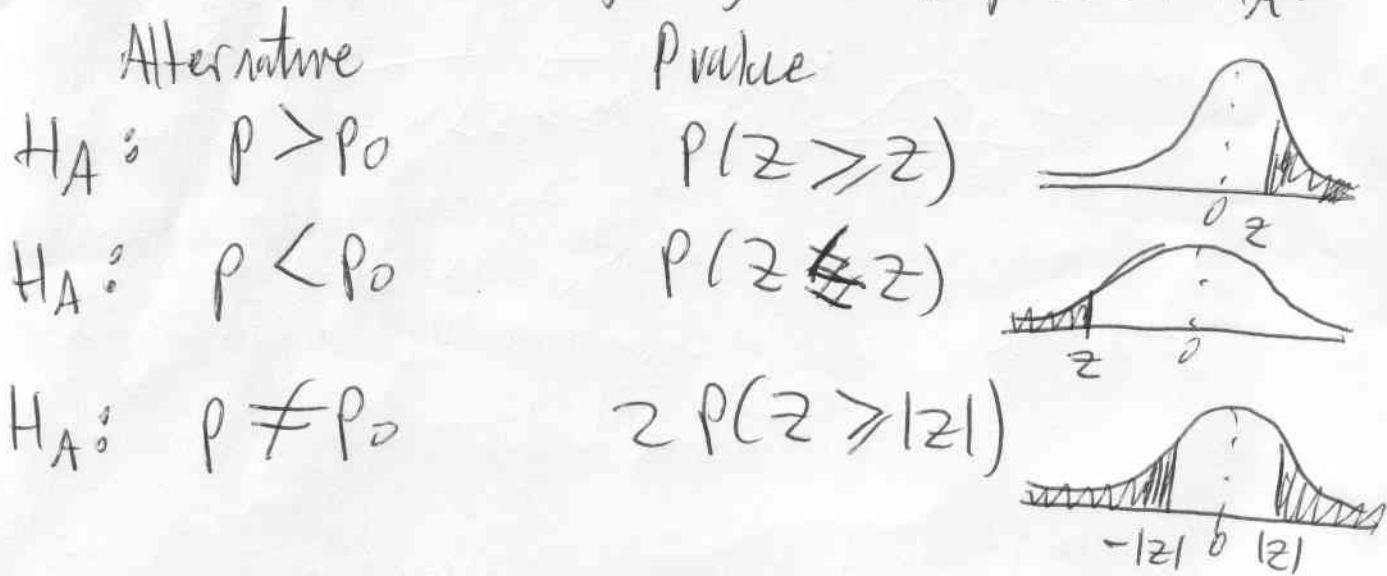 Alternative P value
H_A: p > p₀ P(Z ⩾ z)
0 z
H_A: p < p₀ P(Z ⩽ z)
z 0
H_A: p ≠ p₀ 2 P(Z ⩾ |z|)
-|z| 0 |z|